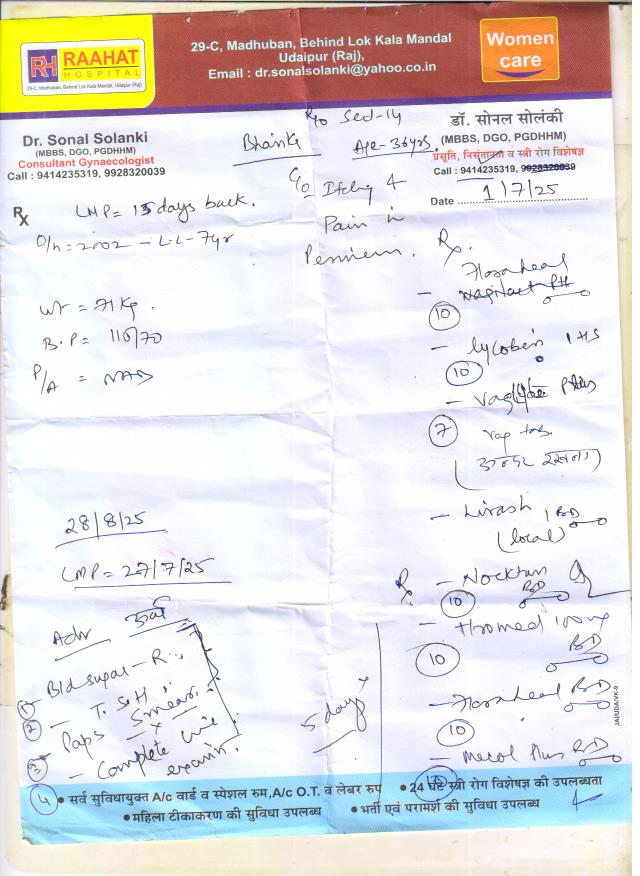 RH RAAHAT
HOSPITAL
29-C, Madhuban, Behind Lok Kala Mandal, Udaipur (Raj)
29-C, Madhuban, Behind Lok Kala Mandal
Udaipur (Raj),
Email : dr.sonalsolanki@yahoo.co.in
Women
care
Dr. Sonal Solanki
(MBBS, DGO, PGDHHM)
Consultant Gynaecologist
Call : 9414235319, 9928320039
डॉ. सोनल सोलंकी
(MBBS, DGO, PGDHHM)
प्रसूति, निसंतानता व स्त्री रोग विशेषज्ञ
Call : 9414235319, 9928320039
Date 1/7/25
R/o Sed-14
Age-36yrs.
Rx
LMP = 15 days back.
C/o Itching &
Pain in
Perineum.
O/H = 2002 - L.L - 7yr
Wt = 71 Kg.
B.P = 110/70
P/A = NAD
Rx
- Floraheal
10
- Lycoben 1 HS
10
7
vag tab
अन्दर रखना)
- Lirash 1 BD
(local)
28/8/25
LMP = 27/7/25
Rx
BD
10
100mg
BD
10
- Floraheal BD
10
- Mecol Plus BD
5 days
Adv
1 - Bld sugar - R
2 - T.S.H
Paps Smear
3 - Complete urine
examin.
4
• सर्व सुविधायुक्त A/c वार्ड व स्पेशल रुम,A/c O.T. व लेबर रुम
• 24 घंटे स्त्री रोग विशेषज्ञ की उपलब्धता
• महिला टीकाकरण की सुविधा उपलब्ध
• भर्ती एवं परामर्श की सुविधा उपलब्ध
JAI/UDA/VK-9